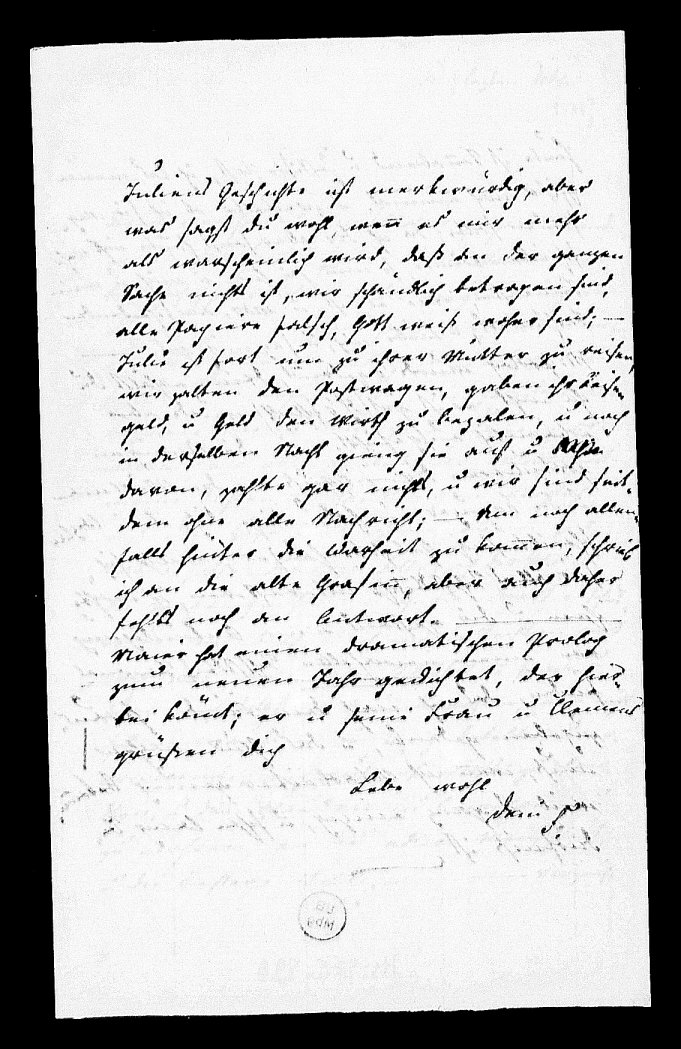 Juliens Geschichte ist merkwürdig, aber
was sagst du wohl, wen̅ es mir mehr
als warscheinlich wird, daß an der ganzen
Sache nichts ist, wir schändlich betrogen sind,
alle Papiere falsch, Gott weiß woher sind; —
Julie ist fort um zu ihrer Mutter zu reisen,
wir zalten den Postwagen, gaben ihr Reise-
geld, u Geld den Wirth zu bezalen, u noch
in derselben Nacht gieng sie auf u
davon, zahlte gar nichts, u wir sind seit-
dem ohne alle Nachricht; — Um noch allen-
falls hinter die Warheit zu kom̅en, schrieb
ich an die alte Gräfin̅, aber auch daher
fehlts noch an Antwort. —
Maier hat einen dramatischen Prolog
zum neuen Jahr gedichtet, der hier-
beiköm̅t; er u seine Frau u Clemens
grüßen dich
Lebe wohl
dein